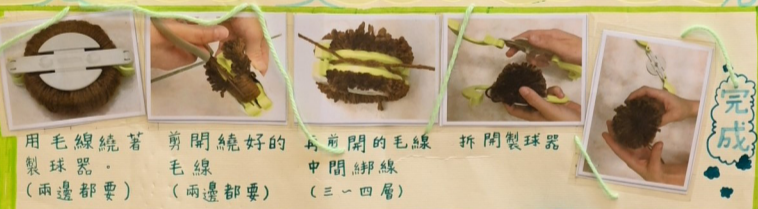 用毛線繞著
製球器。
(兩邊都要)
剪開繞好的
毛線
(兩邊都要)
再剪開的毛線
中間綁線
(三~四層)
拆開製球器
完成